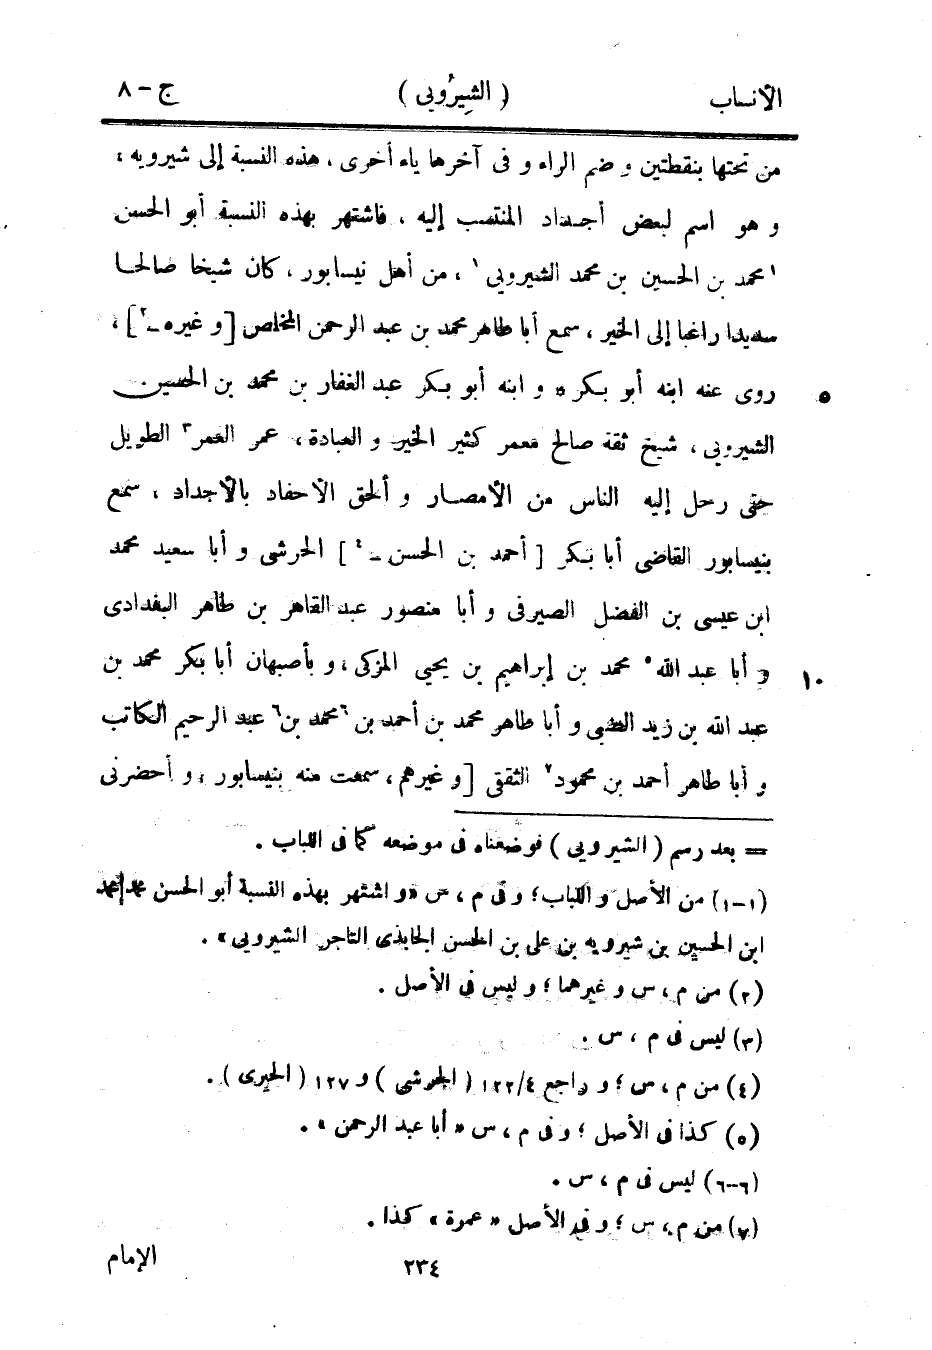 الأنساب ( الشِيرُويى ) ج - ٨
من تحتها بنقطتين و ضم الراء و فى آخرها ياء أخرى ، هذه النسبة إلى شيرويه ،
و هو اسم لبعض أجداد المنتسب إليه ، فاشتهر بهذه النسبة أبو الحسن
١محمد بن الحسين بن محمد الشيرويى١ ، من أهل نيسابور ، كان شيخا صالحا
سديدا راغبا إلى الخير ، سمع أبا طاهر محمد بن عبد الرحمن المخلص [و غيره -٢] ،
روى عنه ابنه أبو بكر ه و ابنه أبو بكر عبد الغفار بن محمد بن الحسين ٥
الشيرويى ، شيخ ثقة صالح معمر كثير الخير و العبادة ، عمر العمر٣ الطويل
حتى رحل إليه الناس من الأمصار و ألحق الأحفاد بالأجداد ، سمع
بنيسابور القاضى أبا بكر [ أحمد بن الحسن -٤ ] الحرشى و أبا سعيد محمد
ابن عيسى بن الفضل الصيرفى و أبا منصور عبد القاهر بن طاهر البغدادى
و أبا عبد الله٥ محمد بن إبراهيم بن يحيى المزكى ، و بأصبهان أبا بكر محمد بن ١٠
عبد الله بن زيد الضبى و أبا طاهر محمد بن أحمد بن ٦محمد بن٦ عبد الرحيم الكاتب
و أبا طاهر أحمد بن محمود٧ الثقفى [و غيرهم ، سمعت منه بنيسابور ، و أحضرنى
= بعد رسم ( الشيرويى ) فوضعناه فى موضعه كما فى اللباب .
(١-١) من الأصل و اللباب ؛ و فى م ، س «و اشتهر بهذه النسبة أبو الحسن محمد أحمد
ابن الحسين بن شيرويه بن على بن الحسن الجابذى التاجر الشيرويى» .
(٢) من م ، س و غيرهما ؛ و ليس فى الأصل .
(٣) ليس فى م ، س .
(٤) من م ، س ؛ و راجع ١٢٢/٤ ( الحرشى ) و ١٢٧ ( الحيرى ) .
(٥) كذا فى الأصل ؛ و فى م ، س « أبا عبد الرحمن » .
(٦-٦) ليس فى م ، س .
(٧) من م ، س ؛ و فى الأصل « عمرة » كذا .
٢٣٤ الإمام